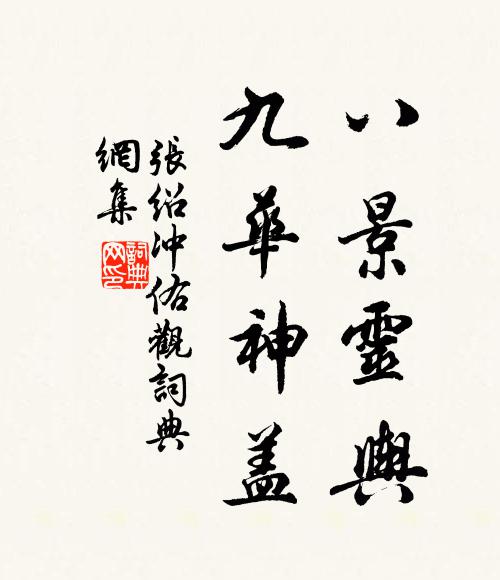 八景靈輿
九華神盖
張紹沖佑觀詞典
網集
詞典网印